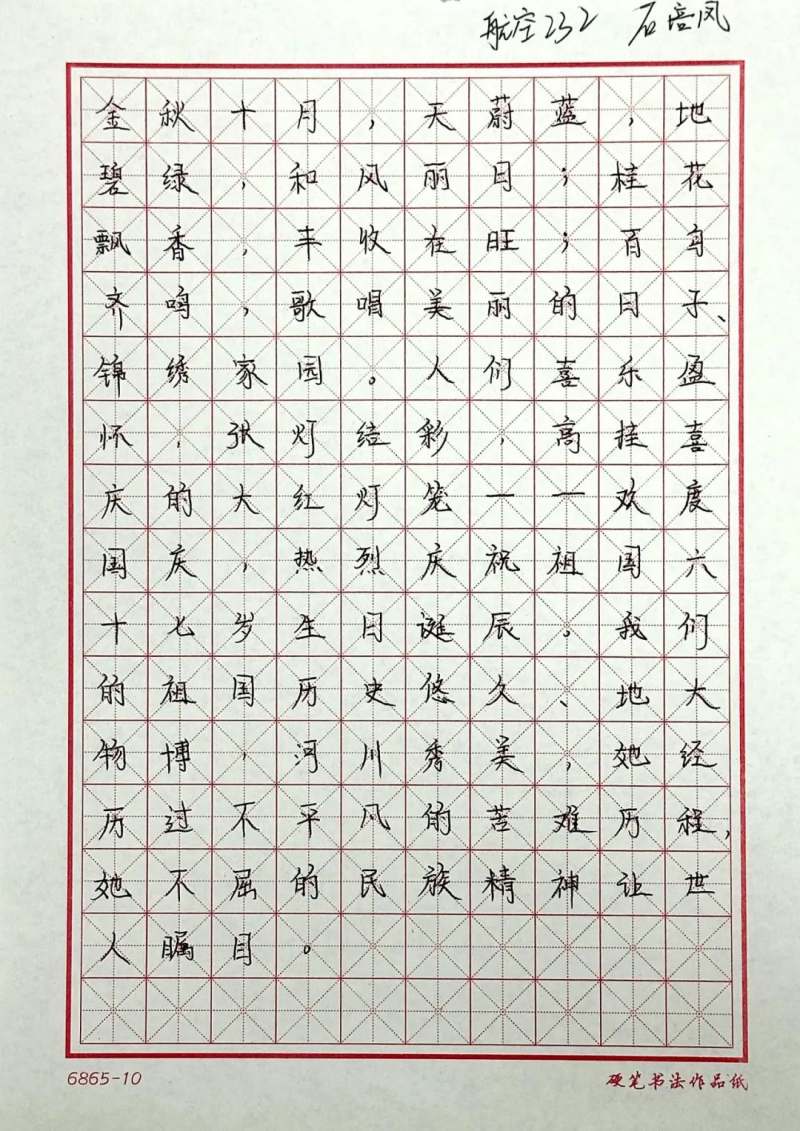 航空232 石培凤
金秋十月，天蔚蓝，地
碧绿，和风丽日；桂花
飘香，丰收在旺；百鸟
齐鸣，歌唱美丽的日子、
锦绣家园。人们喜乐盈
怀，张灯结彩，高挂喜
庆的大红灯笼——欢度
国庆，热烈庆祝祖国六
十七岁生日诞辰。我们
的祖国历史悠久、地大
物博，河川秀美，她经
历过不平风的苦难历程，
她不屈的民族精神让世
人瞩目。
6865-10 硬笔书法作品纸